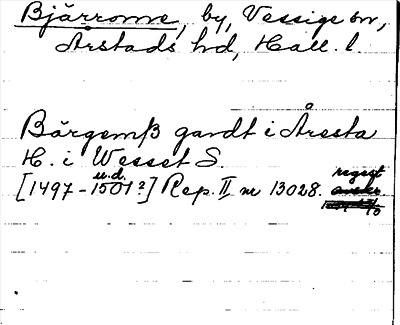 Bjärrome, by, Vessige sn,
Årstads hd, Hall. l.
Börgemß gardt i Åresta
H. i Wesset S.
u.d.
[1497-1501?] Rep. II nr 13028. regest